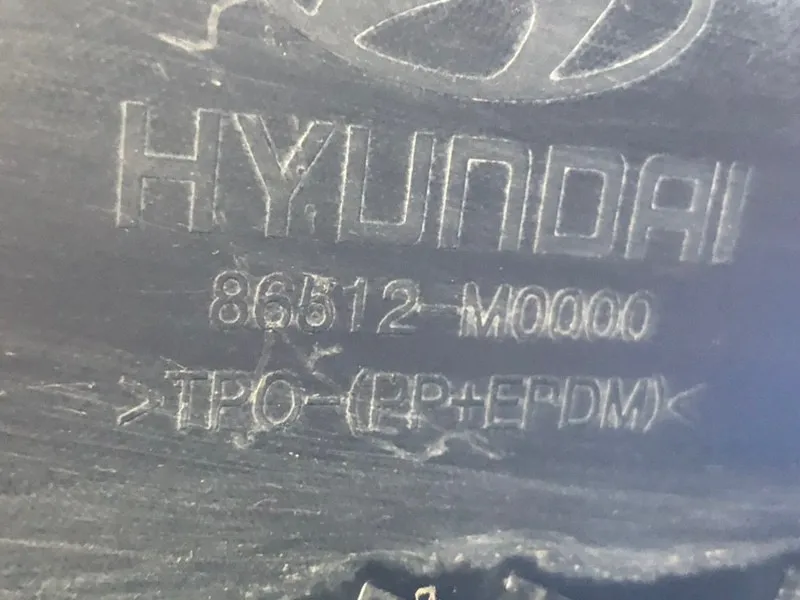 HYUNDAI
86512-M0000
>TPO-(PP+EPDM)<